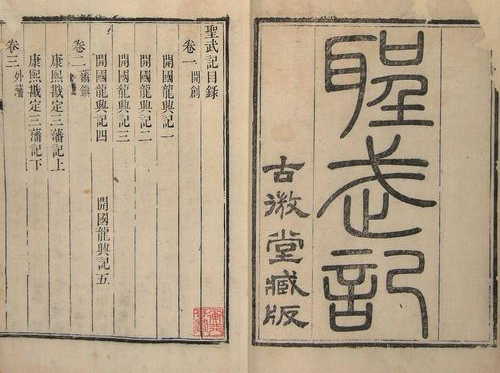 聖武記
古微堂藏版
聖武記目錄
卷一 開創
開國龍興記一
開國龍興記二
開國龍興記三
開國龍興記四
開國龍興記五
卷二 藩鎮
康熙戡定三藩記上
康熙戡定三藩記下
卷三 外藩